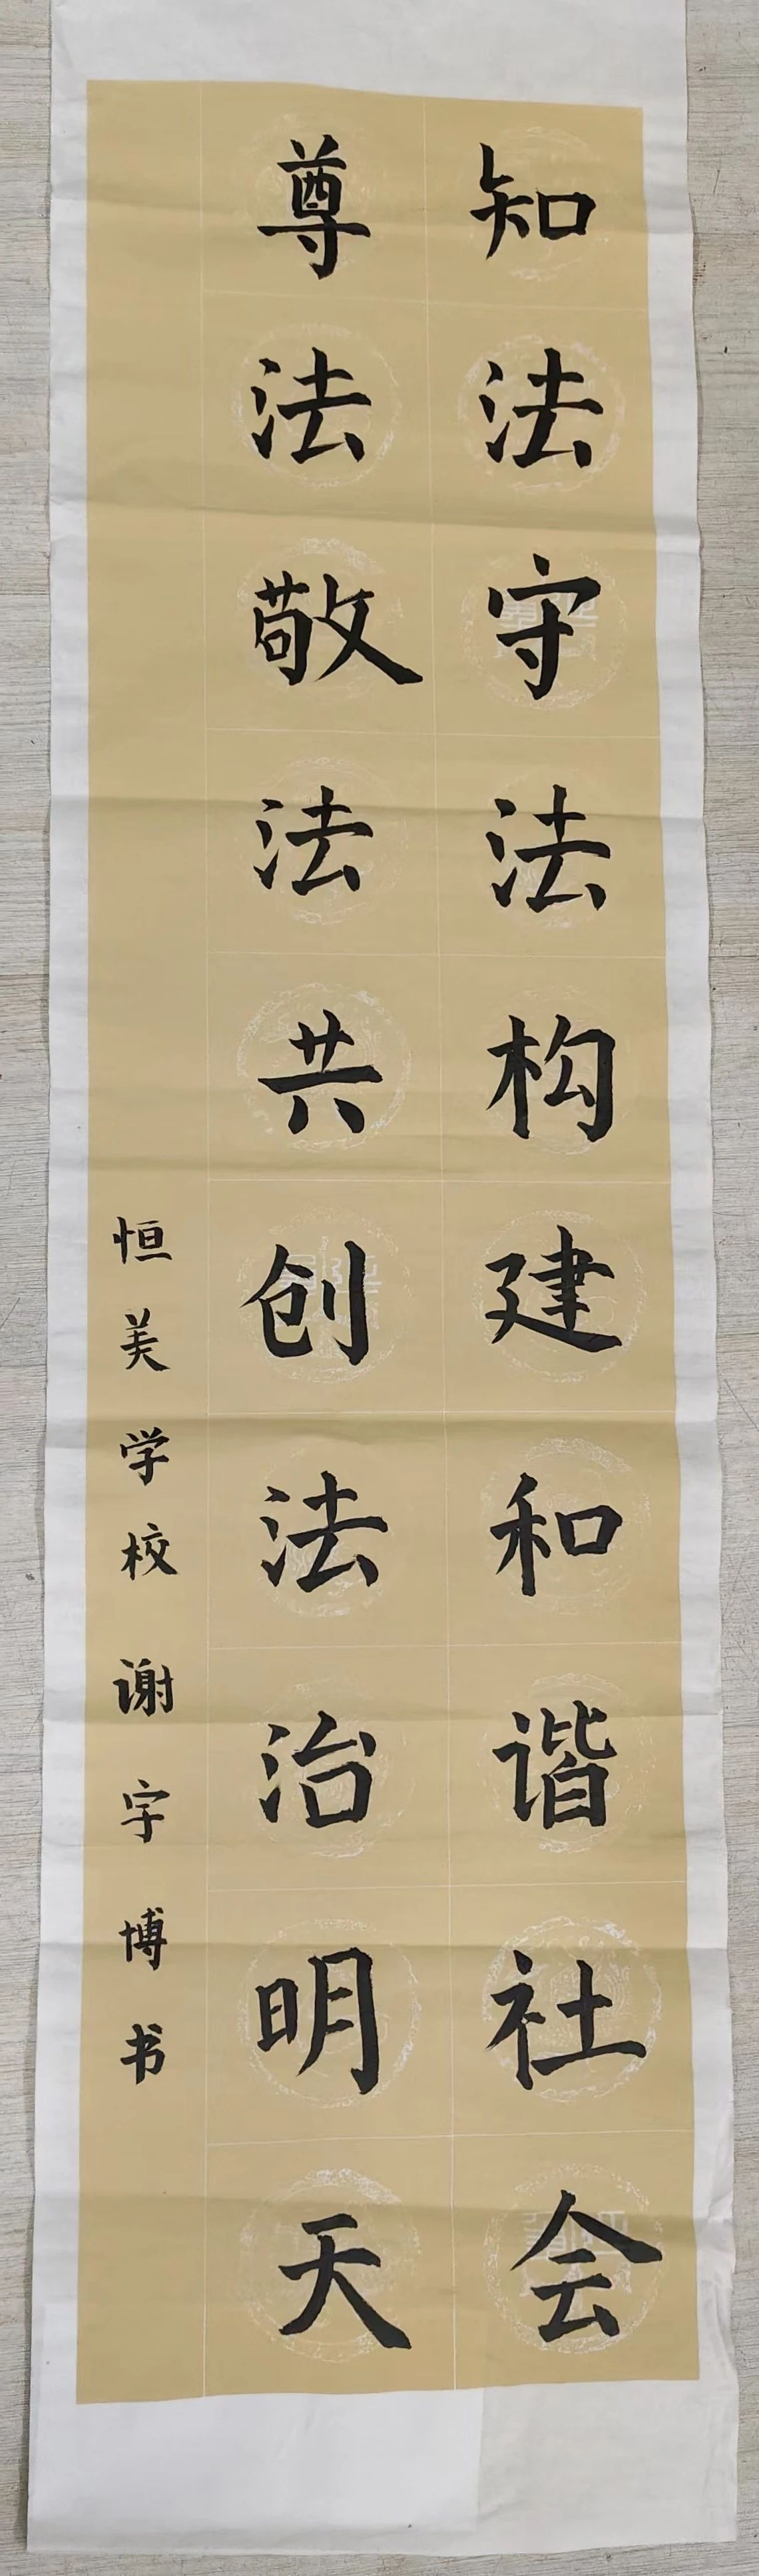 知法守法构建和谐社会
尊法敬法共创法治明天
恒美学校 谢宇博书